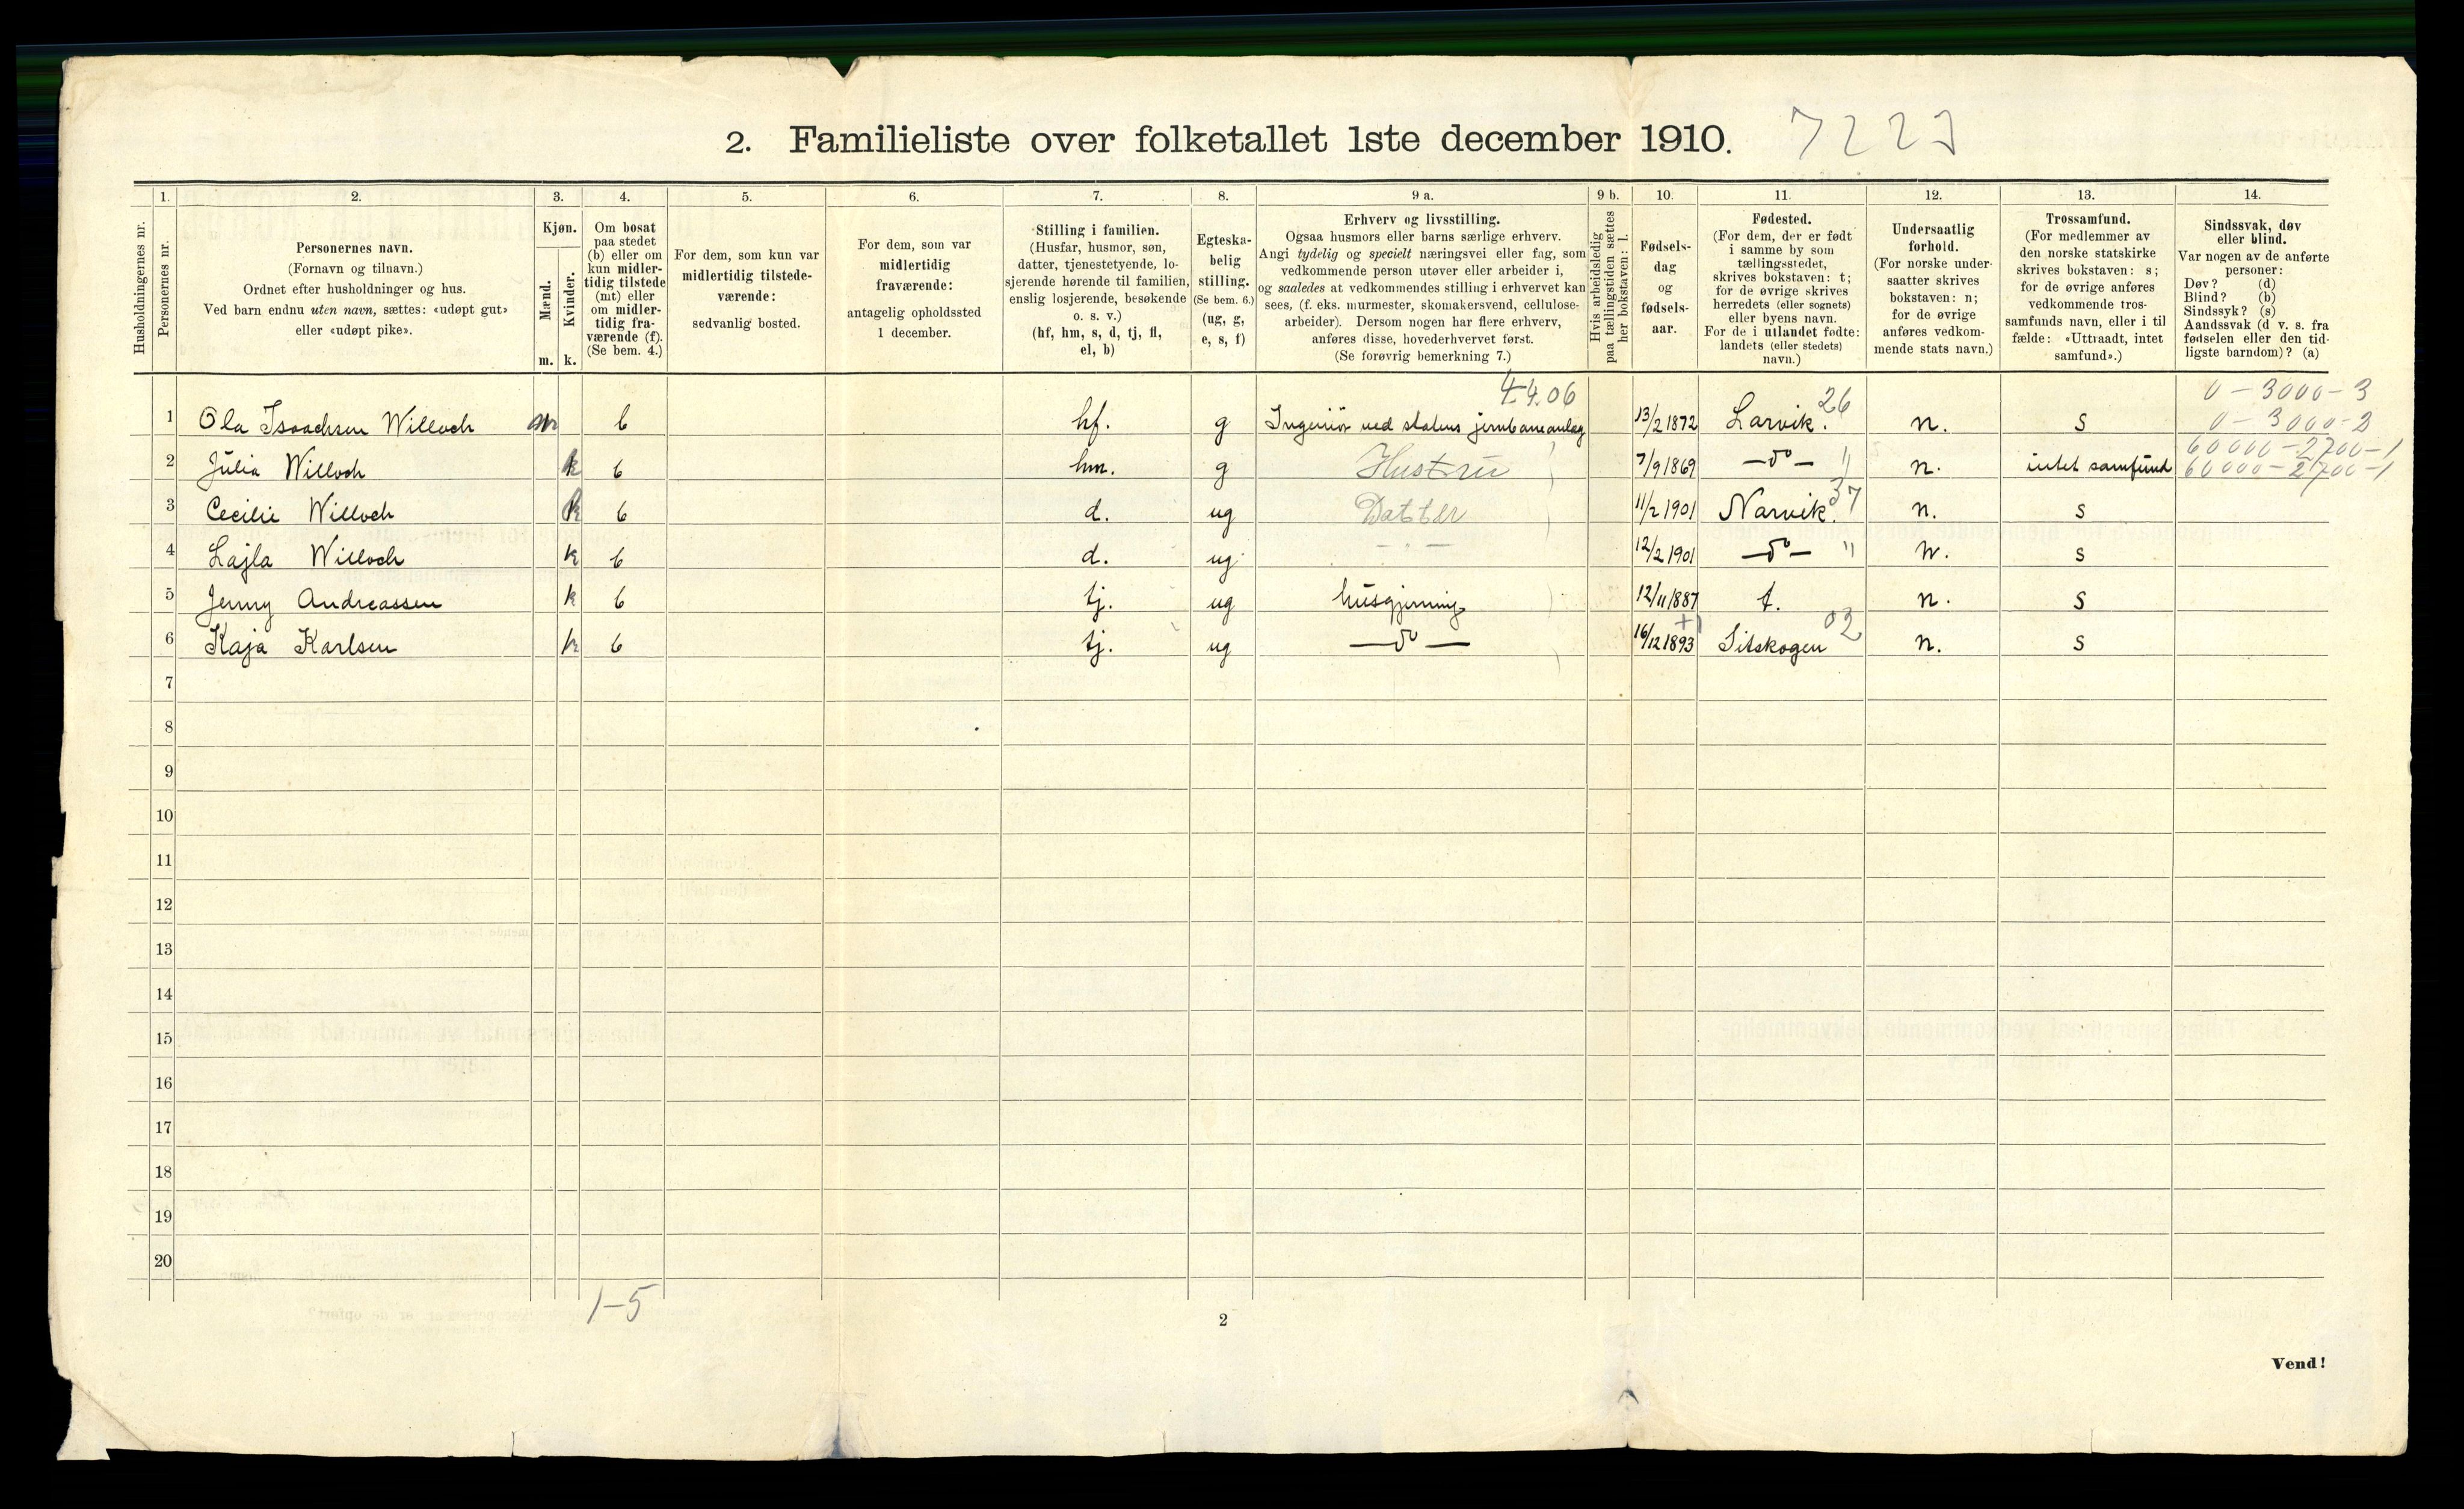 2. Familieliste over folketallet 1ste december 1910. 7227
Husholdningernes nr.
1.
Personernes nr.
2.
Personernes navn.
(Fornavn og tilnavn.)
Ordnet efter husholdninger og hus.
Ved barn endnu uten navn, sættes: «udøpt gut»
eller «udøpt pike».
3.
Kjøn.
Mænd.
Kvinder.
m. k.
4.
Om bosat
paa stedet
(b) eller om
kun midler-
tidig tilstede
(mt) eller
om midler-
tidig fra-
værende (f).
(Se bem. 4.)
5.
For dem, som kun var
midlertidig tilstede-
værende:
sedvanlig bosted.
6.
For dem, som var
midlertidig
fraværende:
antagelig opholdssted
1 december.
7.
Stilling i familien.
(Husfar, husmor, søn,
datter, tjenestetyende, lo-
sjerende hørende til familien,
enslig losjerende, besøkende
o. s. v.)
(hf, hm, s, d, tj, fl,
el, b)
8.
Egteska-
belig
stilling.
(Se bem. 6.)
(ug, g,
e, s, f)
9 a.
Erhverv og livsstilling.
Ogsaa husmors eller barns særlige erhverv.
Angi tydelig og specielt næringsvei eller fag, som
vedkommende person utøver eller arbeider i,
og saaledes at vedkommendes stilling i erhvervet kan
sees, (f. eks. murmester, skomakersvend, cellulose-
arbeider). Dersom nogen har flere erhverv,
anføres disse, hovederhvervet først.
(Se forøvrig bemerkning 7.)
9 b.
Hvis arbeidsledig
paa tællingstiden sættes
her bokstaven: l.
10.
Fødsels-
dag
og
fødsels-
aar.
11.
Fødested.
(For dem, der er født
i samme by som
tællingsstedet,
skrives bokstaven: t;
for de øvrige skrives
herredets (eller sognets)
eller byens navn.
For de i utlandet fødte:
landets (eller stedets)
navn.)
12.
Undersaatlig
forhold.
(For norske under-
saatter skrives
bokstaven: n;
for de øvrige
anføres vedkom-
mende stats navn.)
13.
Trossamfund.
(For medlemmer av
den norske statskirke
skrives bokstaven: s;
for de øvrige anføres
vedkommende tros-
samfunds navn, eller i til
fælde: «Uttraadt, intet
samfund».)
14.
Sindssvak, døv
eller blind.
Var nogen av de anførte
personer:
Døv? (d)
Blind? (b)
Sindssyk? (s)
Aandssvak (d v. s. fra
fødselen eller den tid-
ligste barndom)? (a)
4.4.06 0 - 3000 - 3
1 Ola Isaachsen Willoch m b hf. g Ingeniør ved statens jernbaneanlæg 13/2 1872 Larvik. 26 n. s 0 - 3000 - 3
60000 - 2700 - 1
2 Julia Willoch k b hm. g Hustru 7/9 1869 —do— " n. intet samfund 60000 - 2700 - 1
3 Cecilie Willoch k b d. ug Datter 11/2 1901 Narvik. 37 n. s
4 Lajla Willoch k b d. ug —.— 12/2 1901 —do— " n. s
5 Jenny Andreassen k b tj. ug husgjerning 12/11 1887 t. n. s
6 Kaja Karlsen k b tj. ug —do— 16/12 1893 +1 Sitskogen 02 n. s
7
8
9
10
11
12
13
14
15
16
17
18
19
20
1-5
2
Vend!